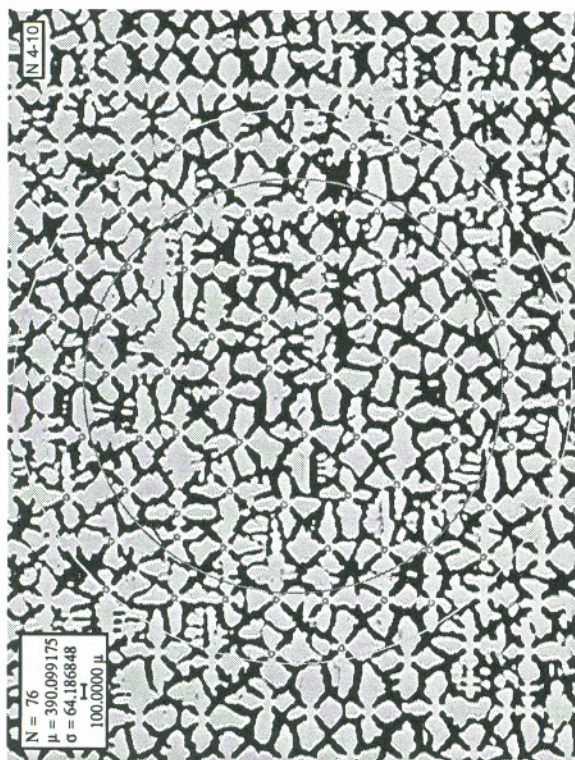 N 4-10
N = 76
μ = 390.099175
σ = 64.186848
100.0000 μ